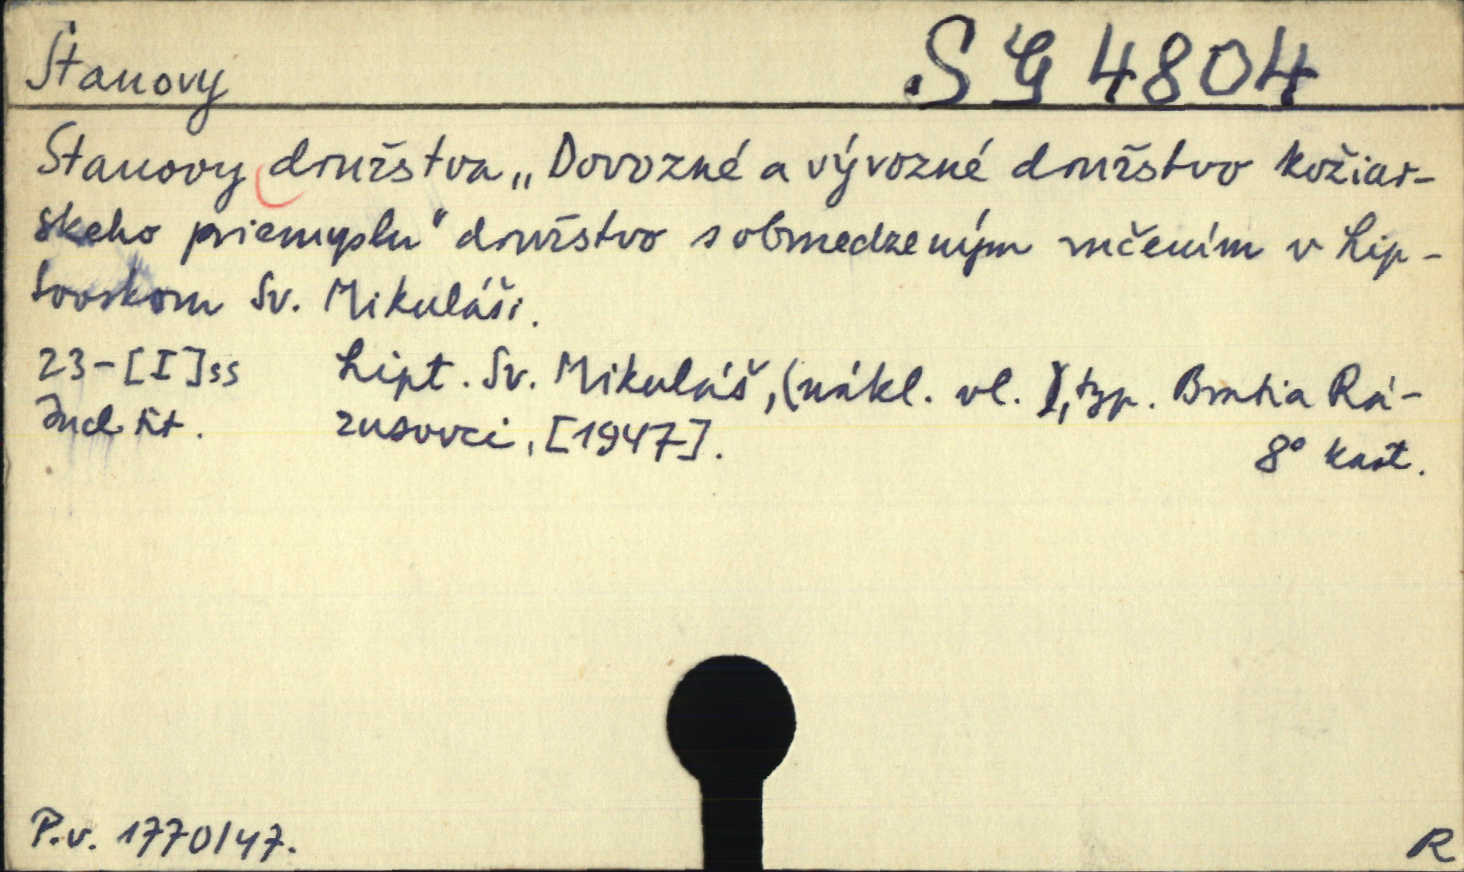 Stanovy
SG 4804
Stanovy družstva „Dovozné a vývozné družstvo kožiar-
skeho priemyslu" družstvo s obmedzeným ručením v Lip-
tovskom Sv. Mikuláši.
23-[I]ss Lipt. Sv. Mikuláš, (nákl. vl.), typ. Bratia Rá-
Incl. tit. zusovci, [1947].
8° kart.
P.v. 1770/47.
R